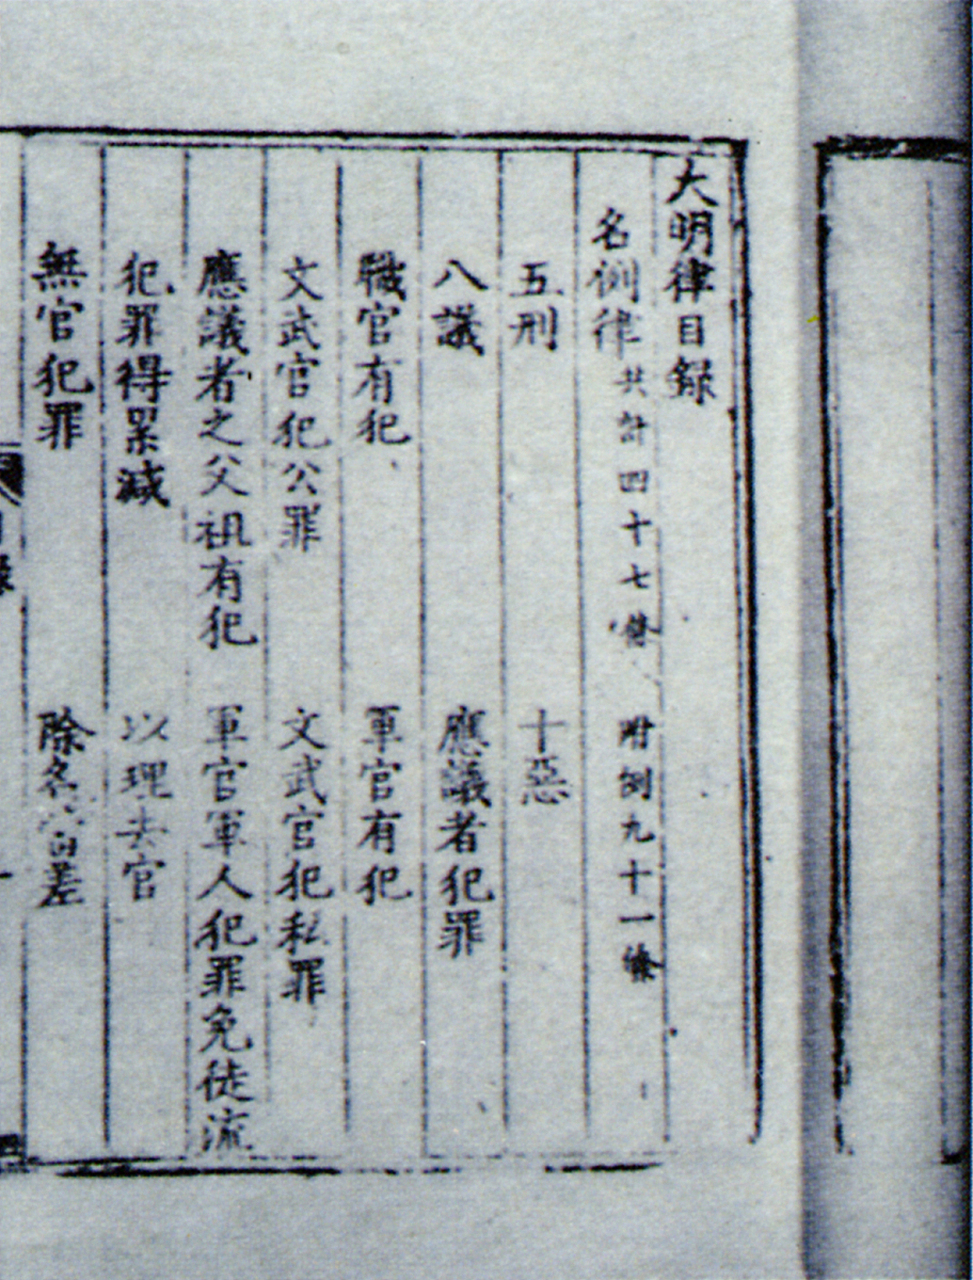 大明律目録
名例律 共計四十七條 附例九十一條
五刑 十惡
八議 應議者犯罪
職官有犯 軍官有犯
文武官犯公罪 文武官犯私罪
應議者之父祖有犯 軍官軍人犯罪免徒流
犯罪得累減 以理去官
無官犯罪 除名當差
目録